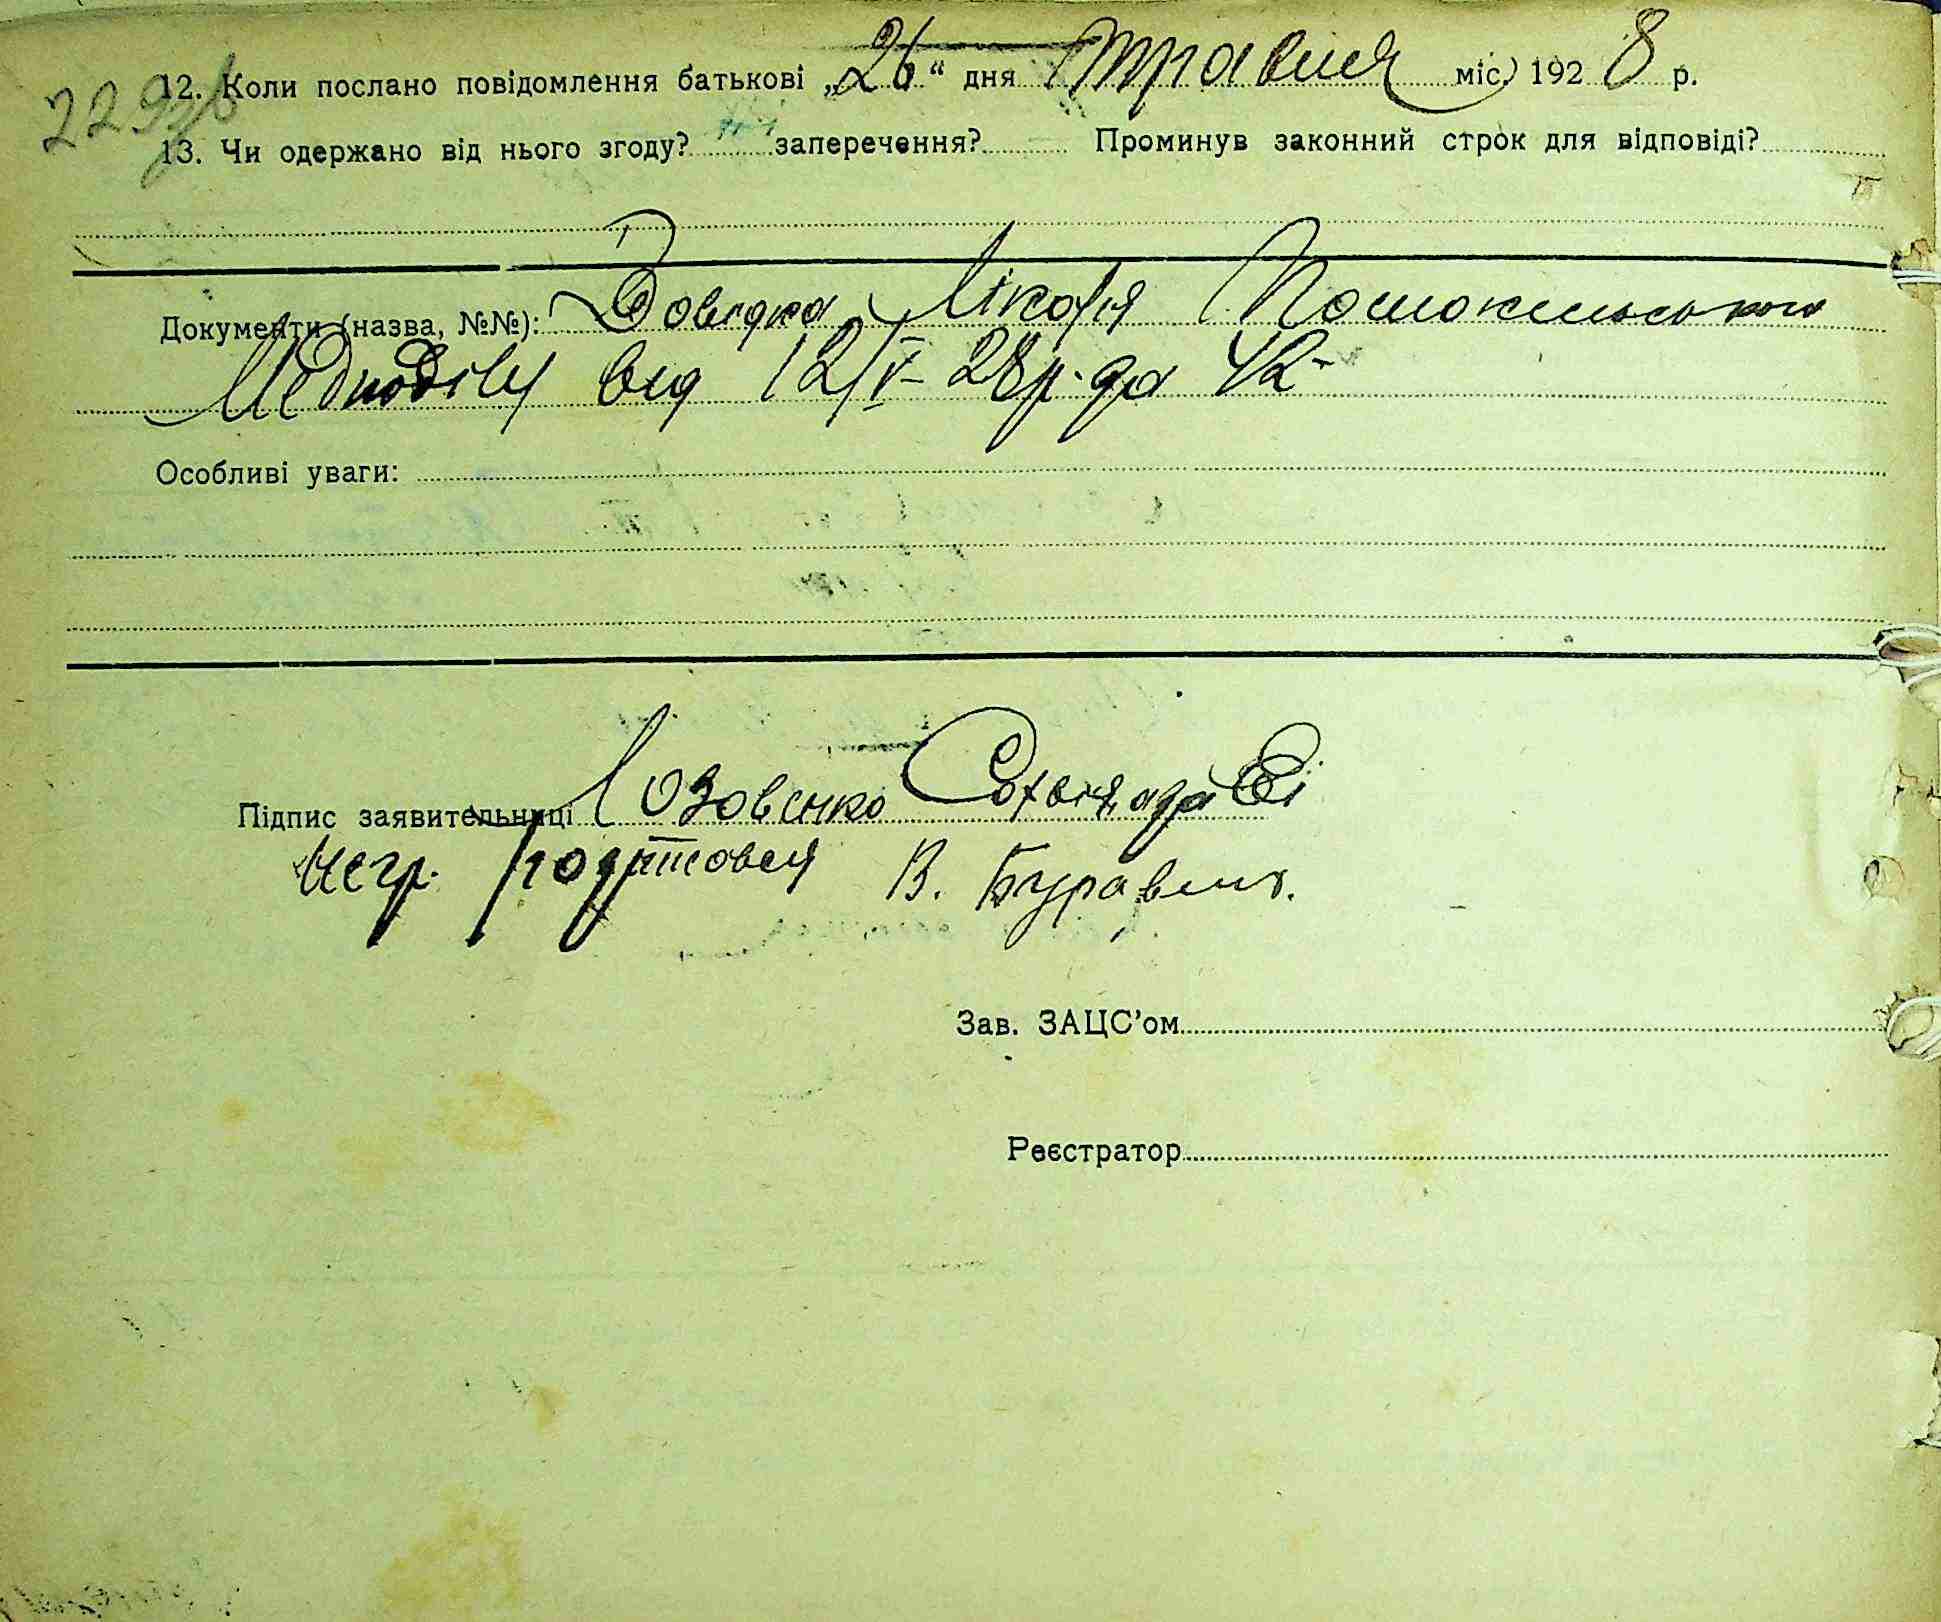 229зв
12. Коли послано повідомлення батькові „26“ дня травня міс. 1928 р.
13. Чи одержано від нього згоду? заперечення? Проминув законний строк для відповіді?
Документи (назва, №№): Довідка Лікаря
Медподілу від 12/V-28р. за 42-
Особливі уваги:
Підпис заявительниці Лозовенко Софія, а за неї
негр. розписався В. Буравель.
Зав. ЗАЦС’ом
Реєстратор